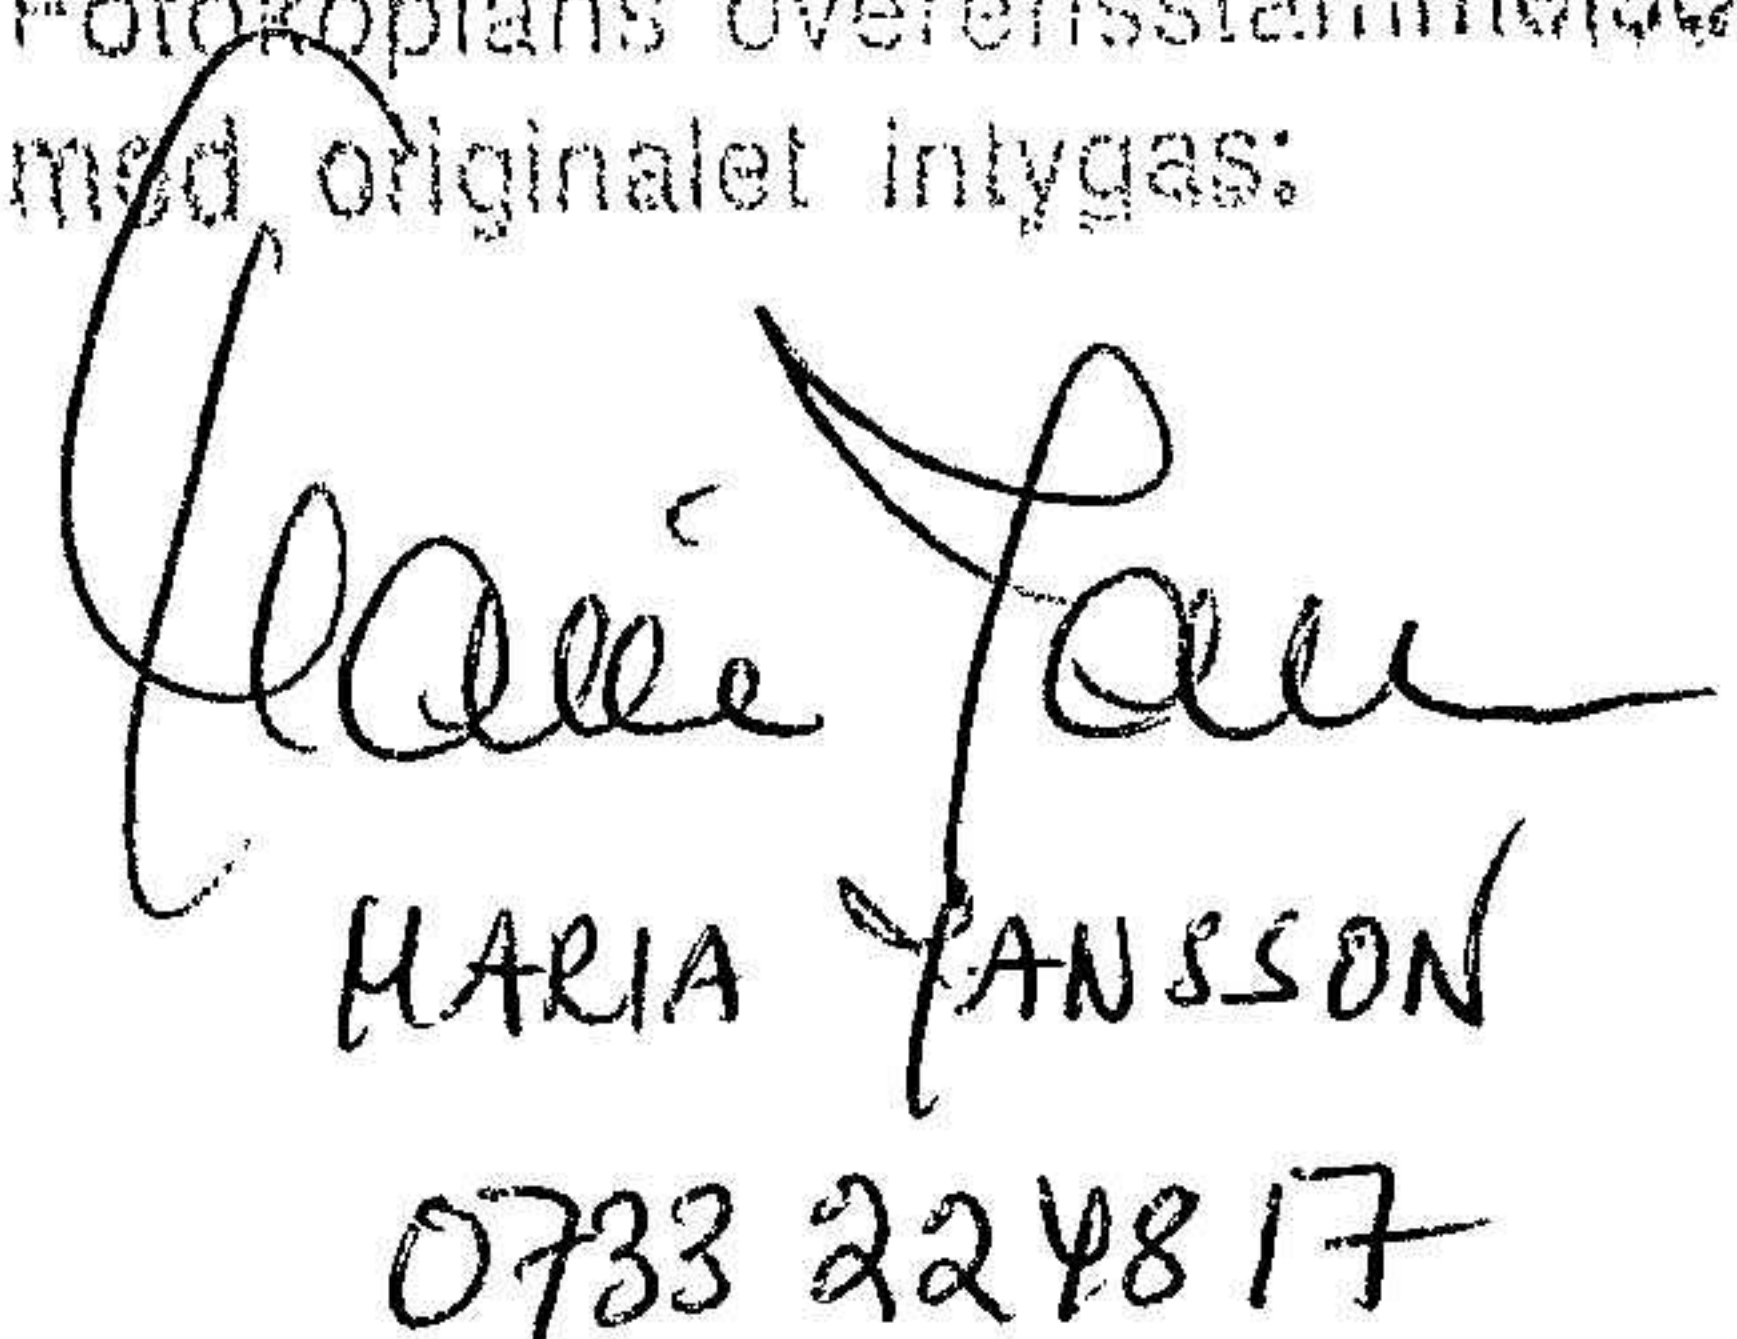 Fotokopians överensstämmelse
med originalet intygas:
MARIA JANSSON
0733 22 48 17